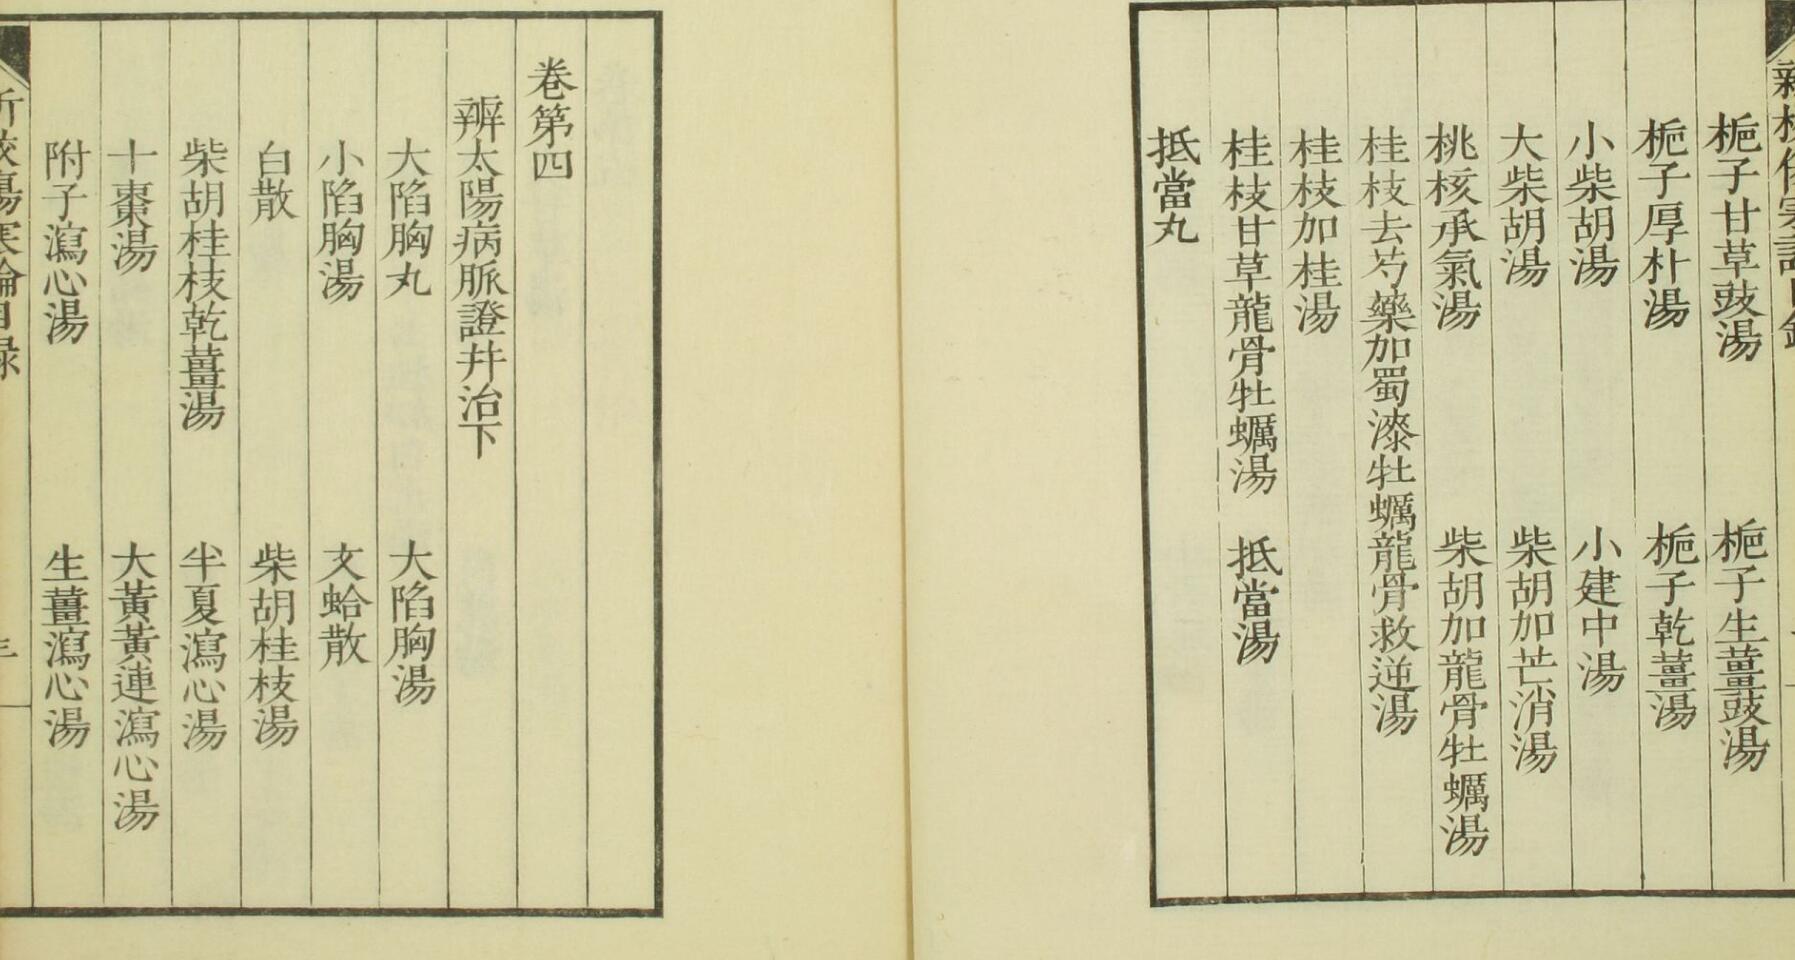 梔子甘草豉湯　梔子生薑豉湯
梔子厚朴湯　梔子乾薑湯
小柴胡湯　小建中湯
大柴胡湯　柴胡加芒消湯
桃核承氣湯　柴胡加龍骨牡蠣湯
桂枝去芍藥加蜀漆牡蠣龍骨救逆湯
桂枝加桂湯
桂枝甘草龍骨牡蠣湯　抵當湯
抵當丸
卷第四
辨太陽病脈證并治下
大陷胸丸　大陷胸湯
小陷胸湯　文蛤散
白散　柴胡桂枝湯
柴胡桂枝乾薑湯　半夏瀉心湯
十棗湯　大黃黃連瀉心湯
附子瀉心湯　生薑瀉心湯